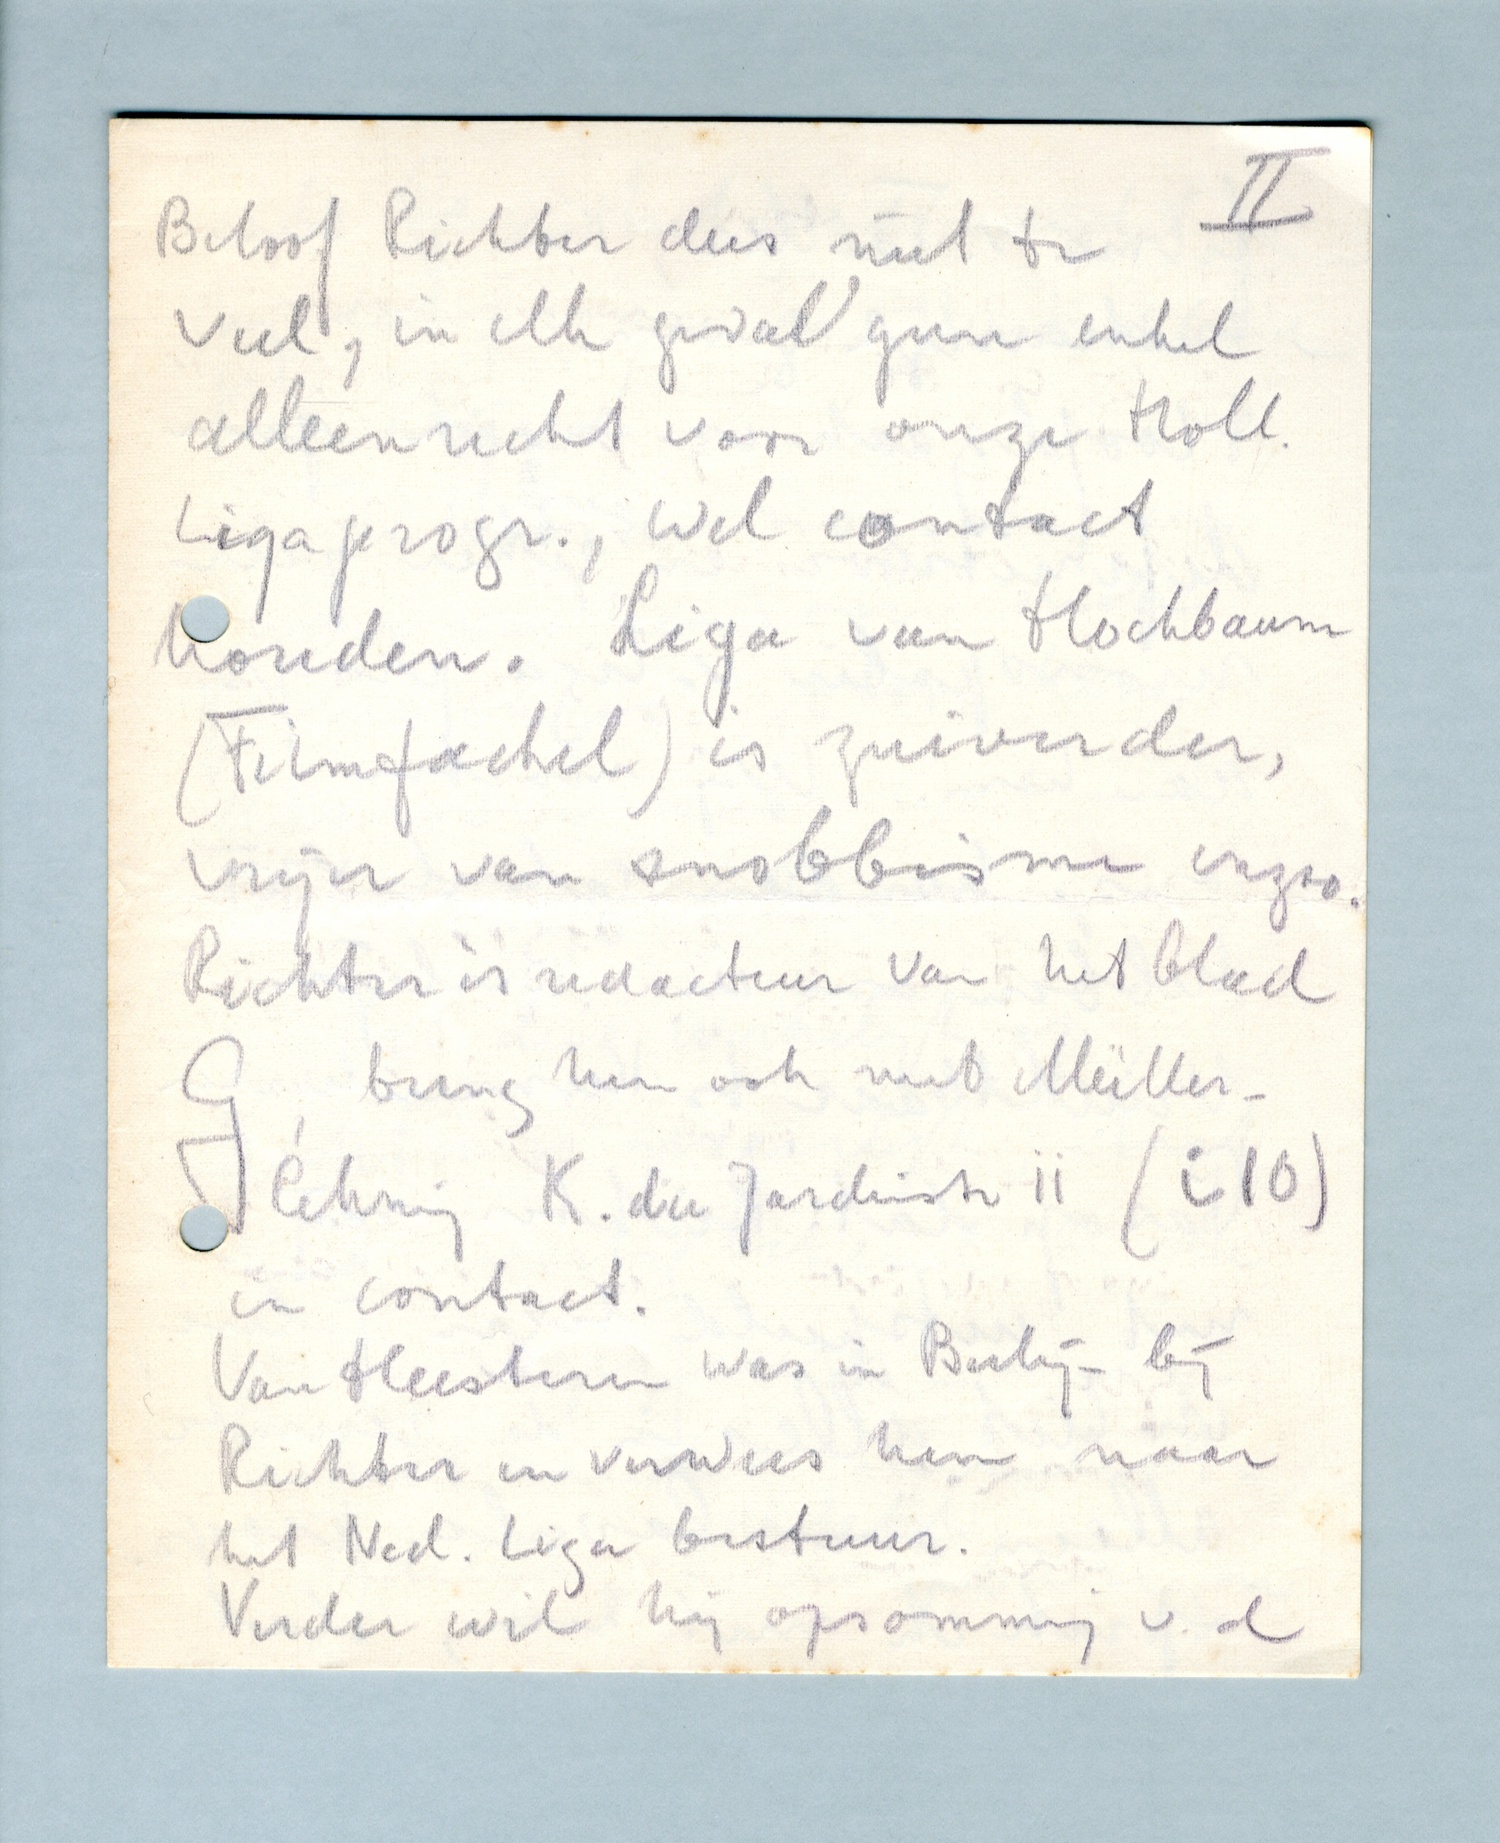 II
Beloof Richter dus niet te
veel, in elk geval geen enkel
alleenrecht voor onze Holl.
Ligaprogr., wel contact
houden. Liga van Hochbaum
(Filmfackel) is zuiverder,
vrijer van snobbisme enzoo.
Richter is redacteur van het blad
G, breng hem ook met Müller-
Lehning K. du Jardinstr 11 (i10)
in contact.
Van Heesteren was in Berlijn bij
Richter en verwees hem naar
het Ned. Liga bestuur.
Verder wil hij opsomming v. d